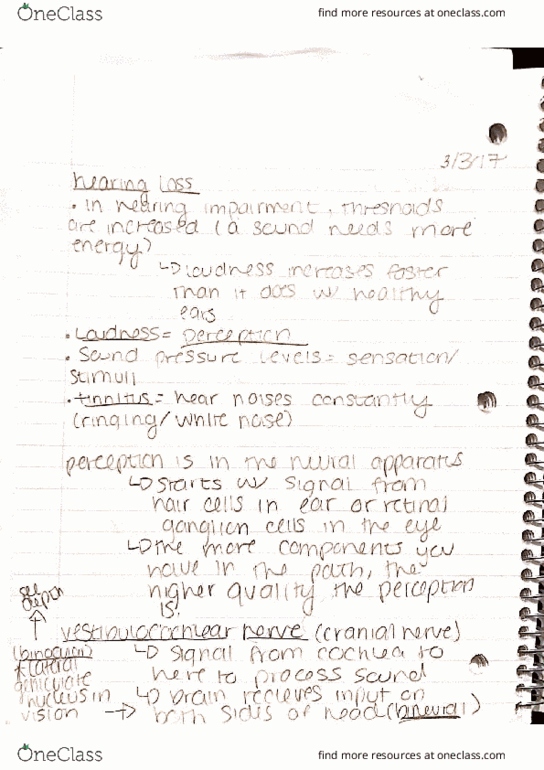 OneClass
find more resources at oneclass.com
3/3/17
hearing loss
• in hearing impairment, thresholds
are increased (a sound needs more
energy)
↳ loudness increases faster
than it does w/ healthy
ears
• Loudness = perception
• Sound pressure levels = sensation/
stimuli
• tinnitus = hear noises constantly
(ringing/ white noise)
perception is in the neural apparatus
↳ starts w/ signal from
hair cells in ear or retinal
ganglion cells in the eye
↳ the more components you
have in the path, the
higher quality the perception
is!
see
depth
↑
vestibulocochlear nerve (cranial nerve)
(binocular)
↳ signal from cochlea to
lateral
here to process sound
geniculate
nucleus in
↳ brain recieves input on
vision →
both sides of head (bineural)
OneClass
find more resources at oneclass.com